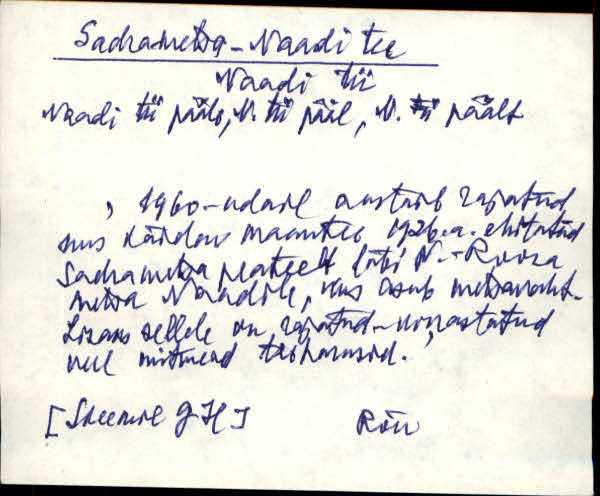 Sadrametsa-Naadi tee
Naadi tii
Naadi tii pääle, N. tii pääl, N. tii päält
, 1960-ndail aastail rajatud
uus käidav maantee 1926.a. ehitatud
Sadrametsa peateelt läbi V.-Roosa
metsa Naadile, kus asub metsavaht-
Lisaks sellele on rajatud-korrastatud
veel mitmeid teeharusid.
Rõu